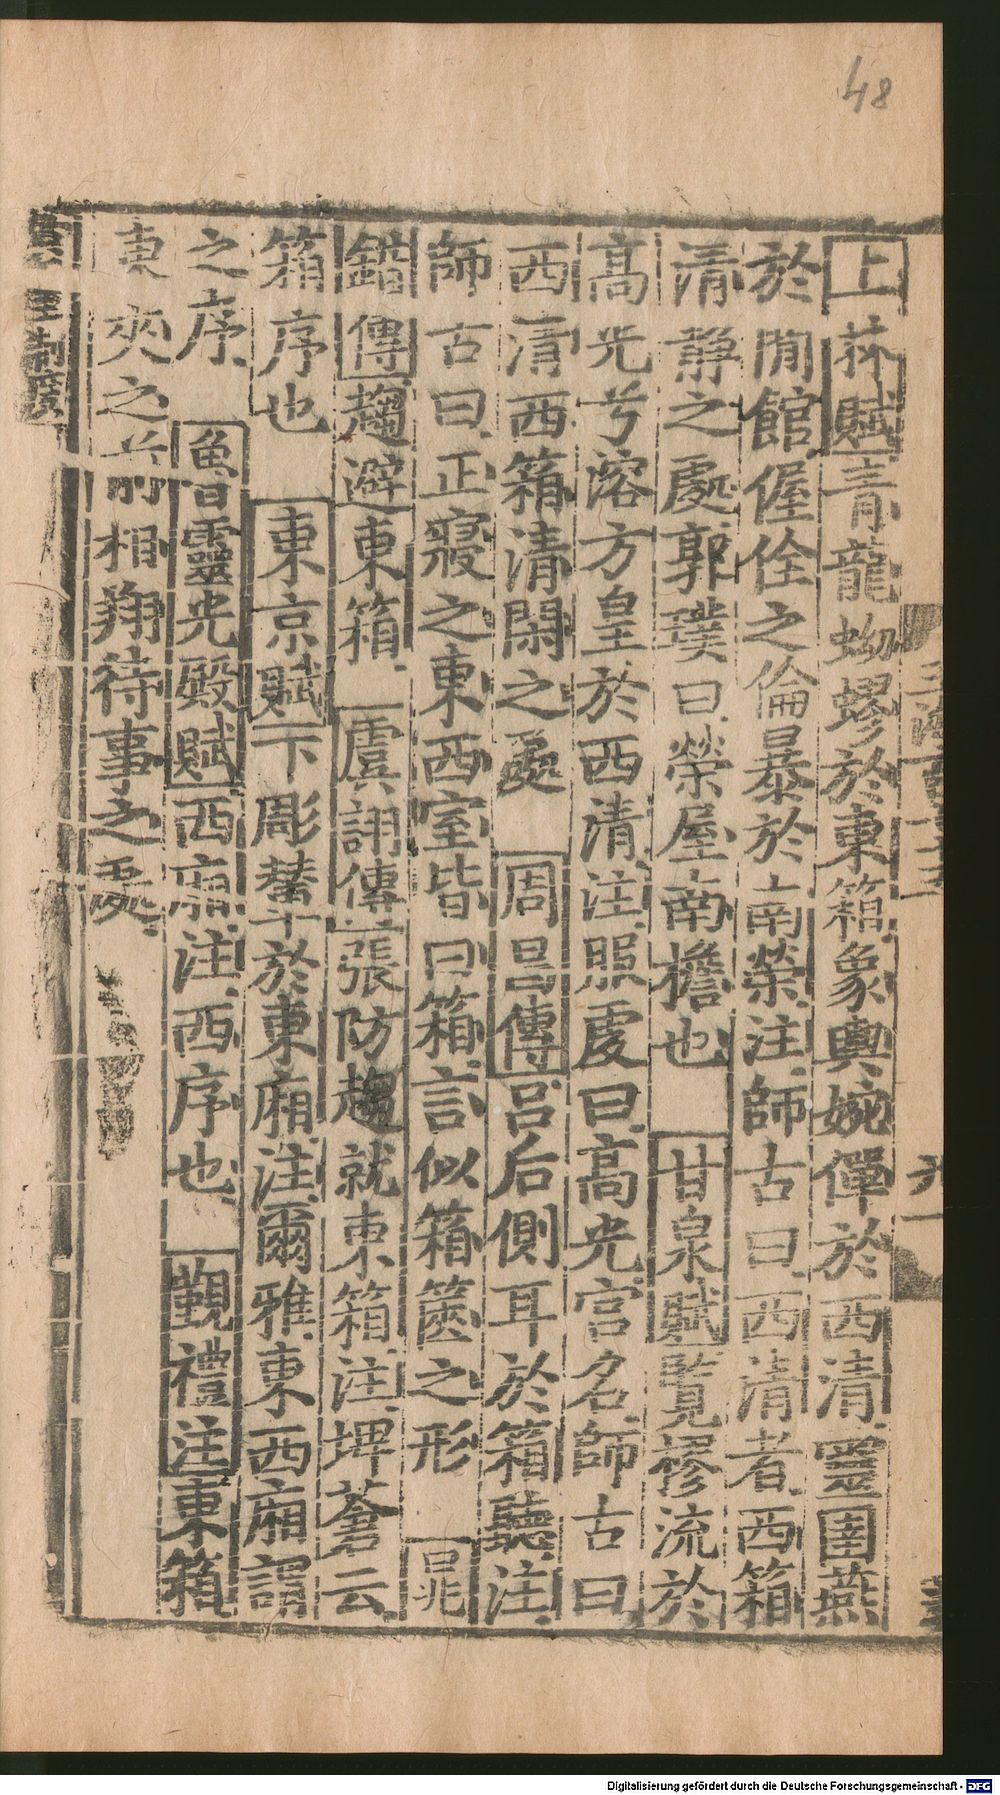 48
上林賦青龍蚴蟉於東箱象輿婉僤於西清靈圉燕
於閒館偓佺之倫暴於南榮注師古曰西清者西箱
清靜之處郭璞曰榮屋南檐也 甘泉賦覽樛流於
高光兮溶方皇於西清注服虔曰高光宫名師古曰
西清西箱清閑之處 周昌傳吕后側耳於箱聽注
師古曰正寢之東西室皆曰箱言似箱篋之形 鼂
錯傳趨避東箱 虞詡傳張防趨就東箱注埤蒼云
箱序也 東京賦下彫輦於東廂注爾雅東西廂謂
之序 魯靈光殿賦西廂注西序也 覲禮注東箱
東夾之前相翔待事之處
Digitalisierung gefördert durch die Deutsche Forschungsgemeinschaft - DFG